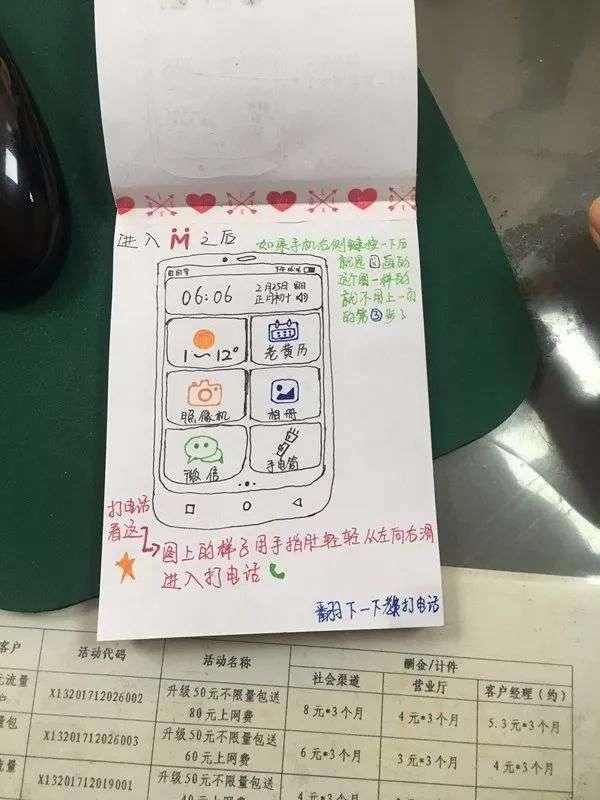 进入
之后
如果手机右侧键按一下后
就是②画的
这个图一样的
就不用上一页
的第③步了
06:06
2月25日
正月初十
1~12°
老黄历
照像机
相册
微信
手电筒
打电话
看这
图上的样子用手指肚轻轻从左向右滑
进入打电话
翻下一下教打电话
客户
活动代码
活动名称
酬金/计件
社会渠道
营业厅
客户经理（约）
元流量
X13201712026002
升级50元不限量包送
80元上网费
8元*3个月
4元*3个月
5.3元*3个月
量包
X13201712026003
升级50元不限量包送
60元上网费
6元*3个月
3元*3个月
4元*3个月
流量
X13201712019001
升级50元不限量包送